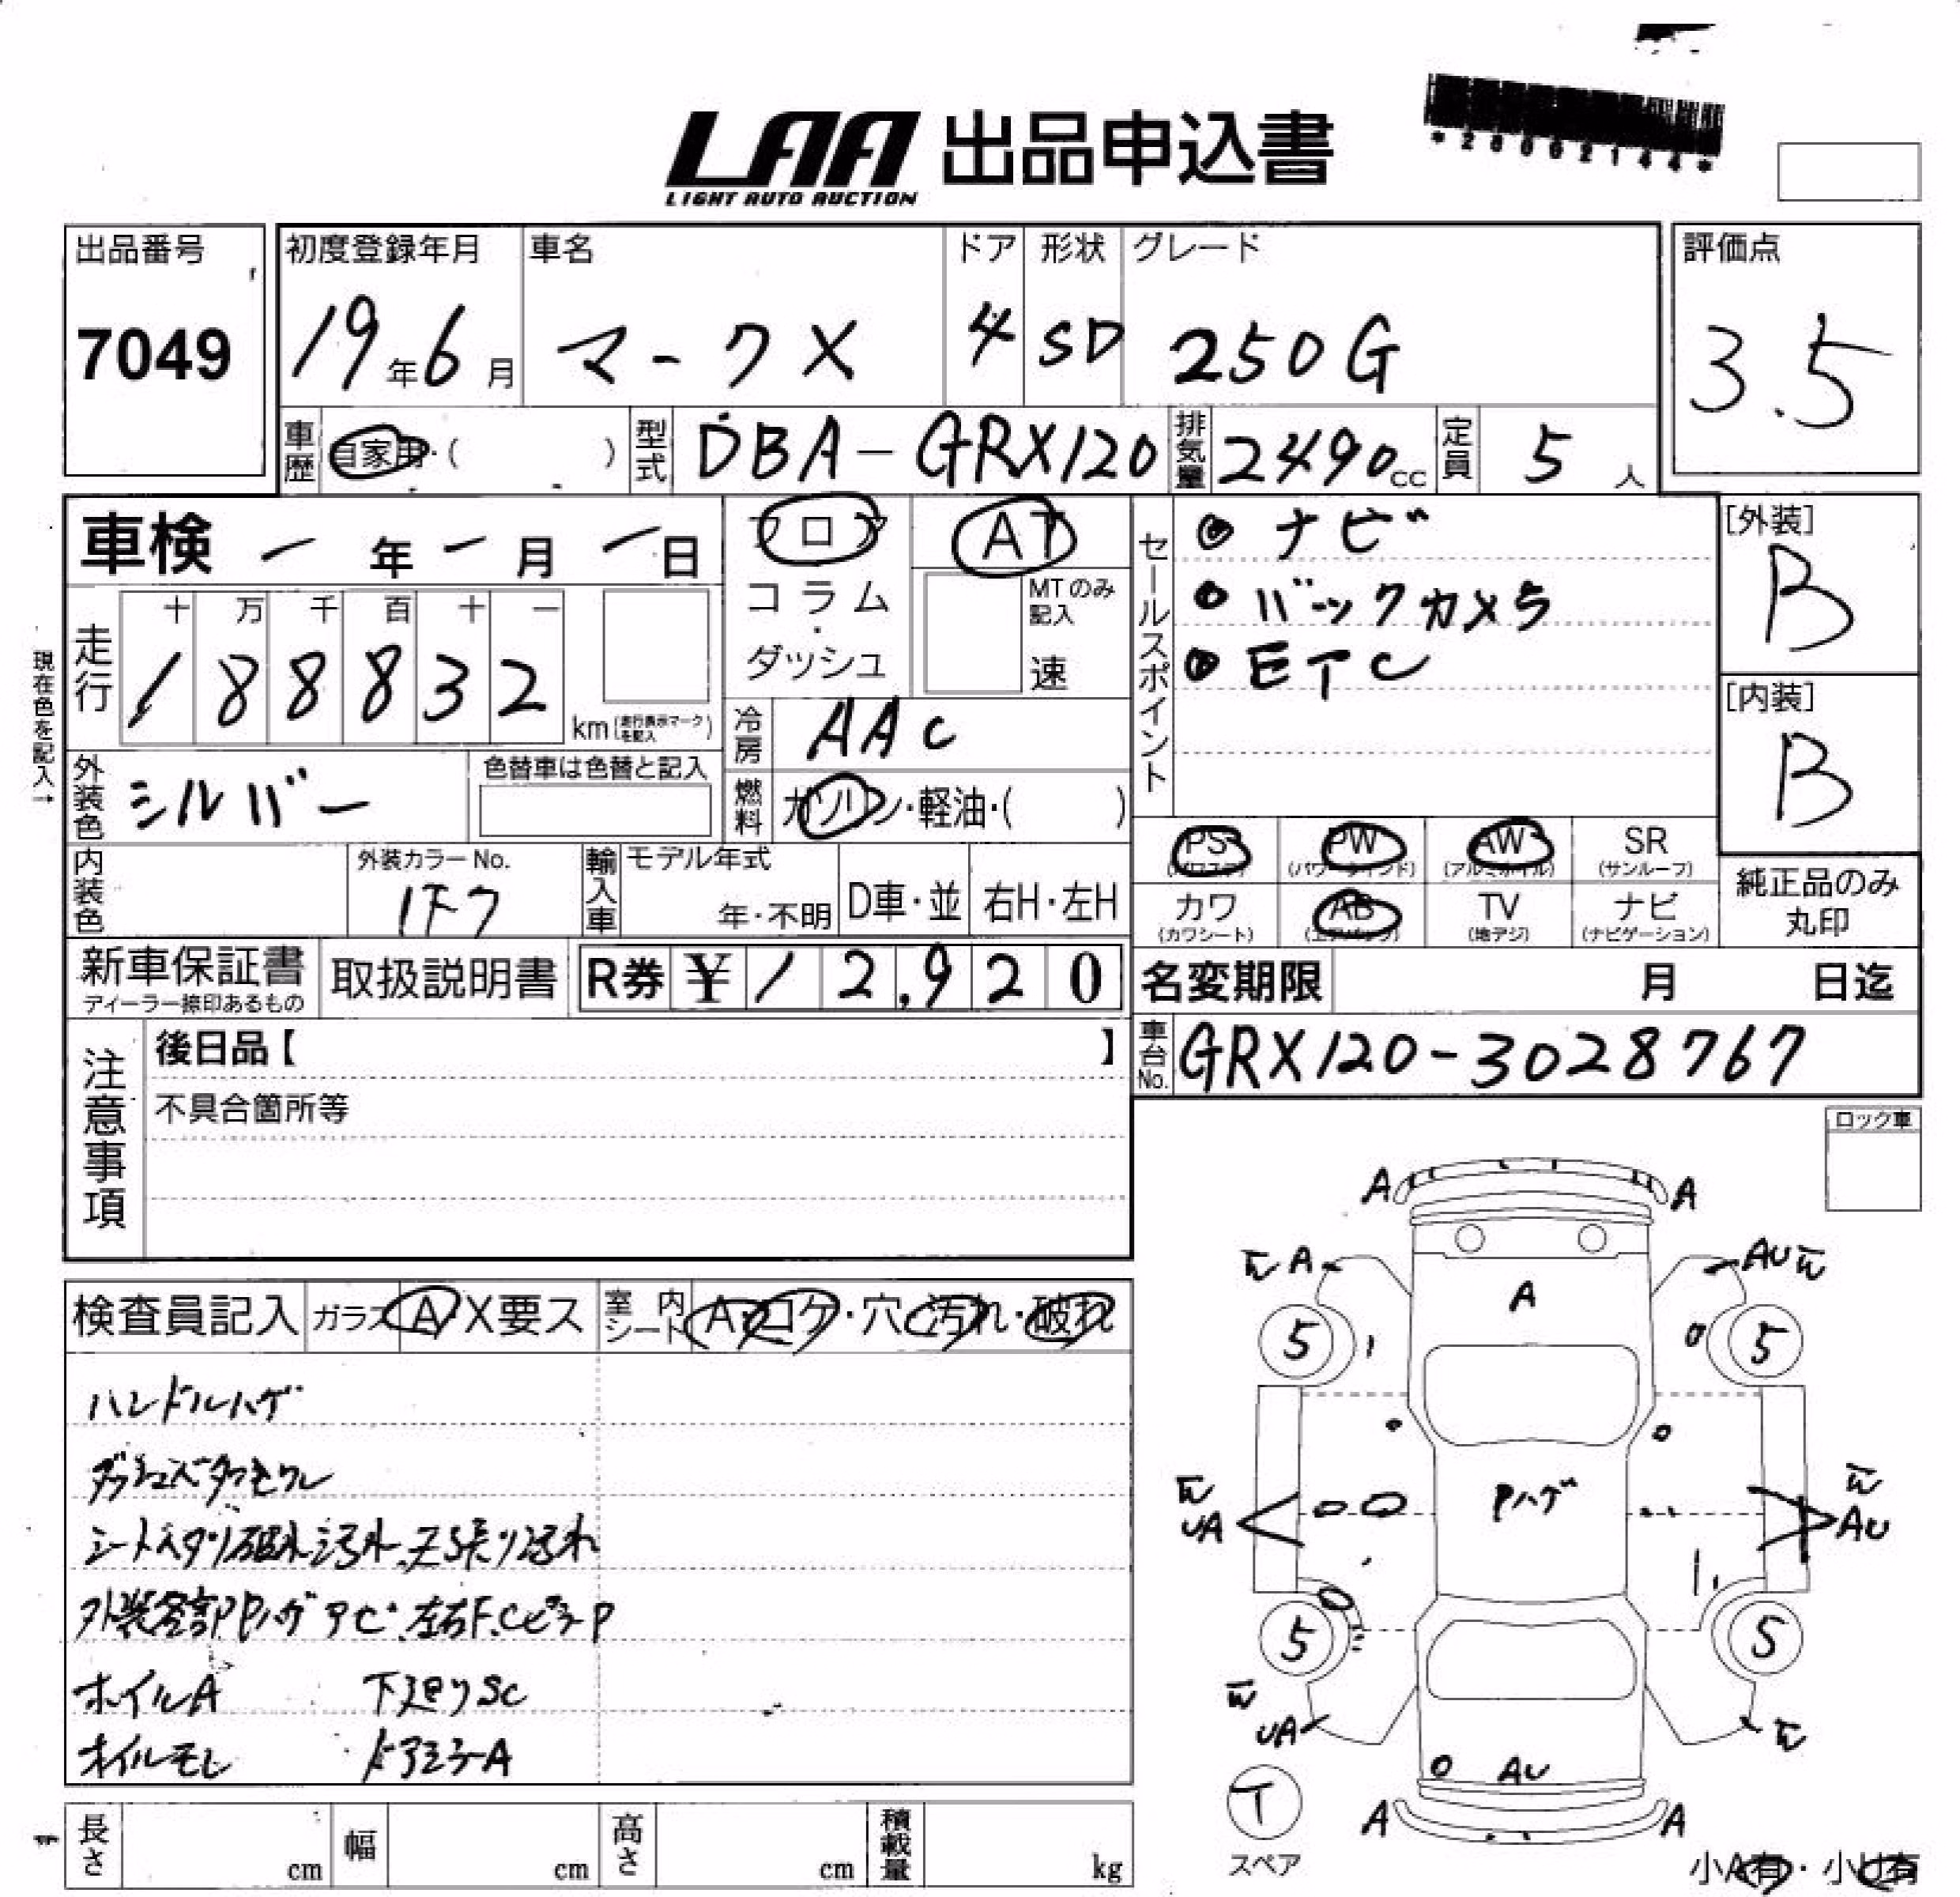 LAA 出品申込書
LIGHT AUTO AUCTION
出品番号 初度登録年月 車名 ドア 形状 グレード 評価点
7049 19年6月 マークX 4 SD 250G 3.5
車歴 自家用・( ) 型式 DBA-GRX120 排気量 2490cc 定員 5人
車検 ー年ー月ー日 フロア AT セールスポイント ナビ [外装]
コラム・ダッシュ MTのみ記入 速 バックカメラ B
走行 十 万 千 百 十 一 ETC
188832 km(走行表示マークを記入) 冷房 AAC [内装]
現在色を記入→ B
外装色 シルバー 色替車は色替と記入 燃料 ガソリン・軽油・( )
PS (パワステ) PW (パワーウインド) AW (アルミホイル) SR (サンルーフ)
内装色 外装カラーNo. 1F7 輸入車 モデル年式 年・不明 D車・並 右H・左H
カワ (カワシート) AB (エアバッグ) TV (地デジ) ナビ (ナビゲーション) 純正品のみ丸印
新車保証書 ディーラー捺印あるもの 取扱説明書 R券 ¥12,920 名変期限 月 日迄
注意事項 後日品【 】 車台No. GRX120-3028767
不具合箇所等
ロック車
検査員記入 ガラス A X要ス 室内シート A・コゲ・穴・汚れ・破れ
ハンドルハゲ
シートヘタリ破れ汚れ、天張り汚れ
外装各部PPハゲ
ホイルA 下廻りSC
オイルモレ ドアミラーA
A A
A AU
A
5 5
Pハゲ
UA AU
5 5
UA
AU
A A
T
スペア
小A有・小U有
長さ cm 幅 cm 高さ cm 積載量 kg